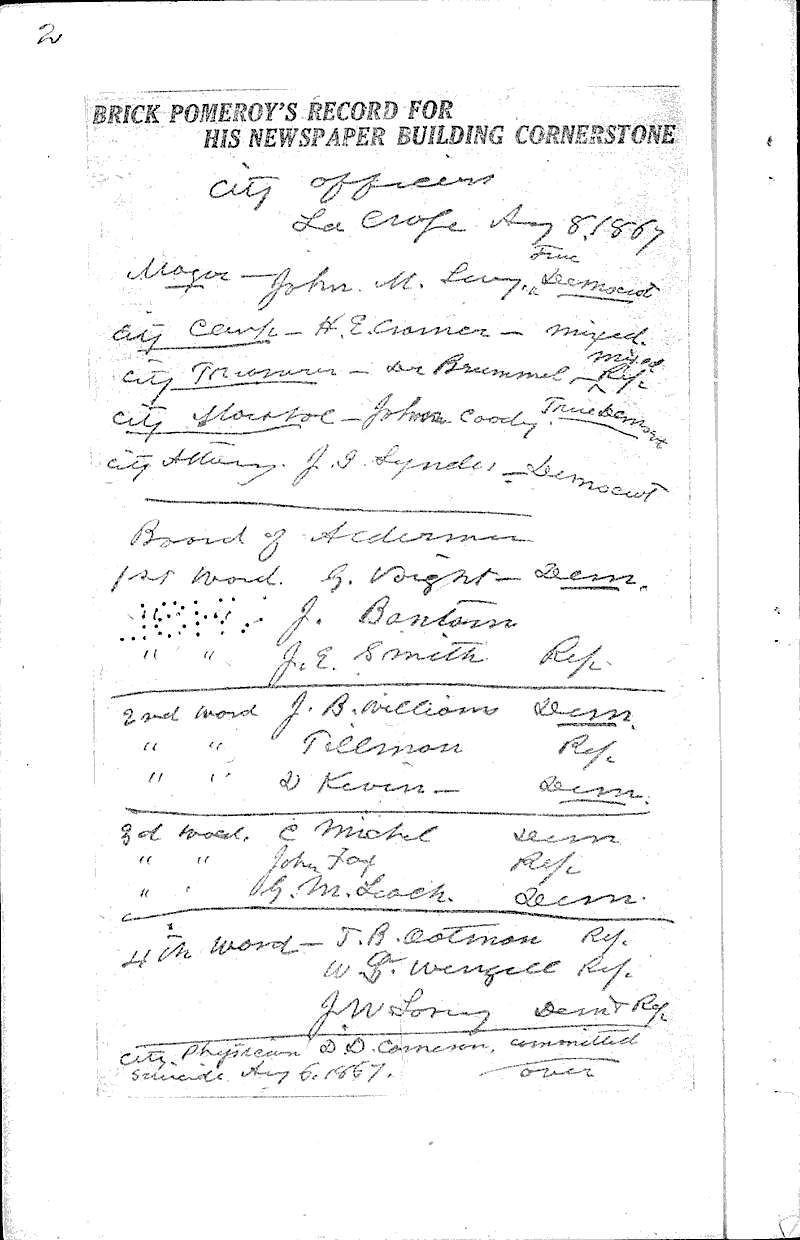 2
BRICK POMEROY'S RECORD FOR
HIS NEWSPAPER BUILDING CORNERSTONE
City officers
La Crosse Aug 8, 1867
Mayor — John M. Levy, True Democrat
City Clerk — H. E. Cramer — mixed.
City Treasurer — Dr Brummel — mixed Rep.
City Marshal — John Coody True Democrat
City Attorney. J. I. Lyndes — Democrat
Board of Aldermen
1st Ward. G. Voight — Dem.
J. Bantam
" " J. E. Smith Rep.
2nd Ward J. B. Williams Dem.
" " Tillman Rep.
" " D Kevin — Dem.
3d Ward. C Michel Dem
" " John Fox Rep.
" " G. M. Leach. Dem.
4th Ward — J. B. Oatman Rep.
W. Rep.
J W Losey Demt Rep.
City Physician D. D. Cameron, committed
Suicide Aug 6, 1867.
over